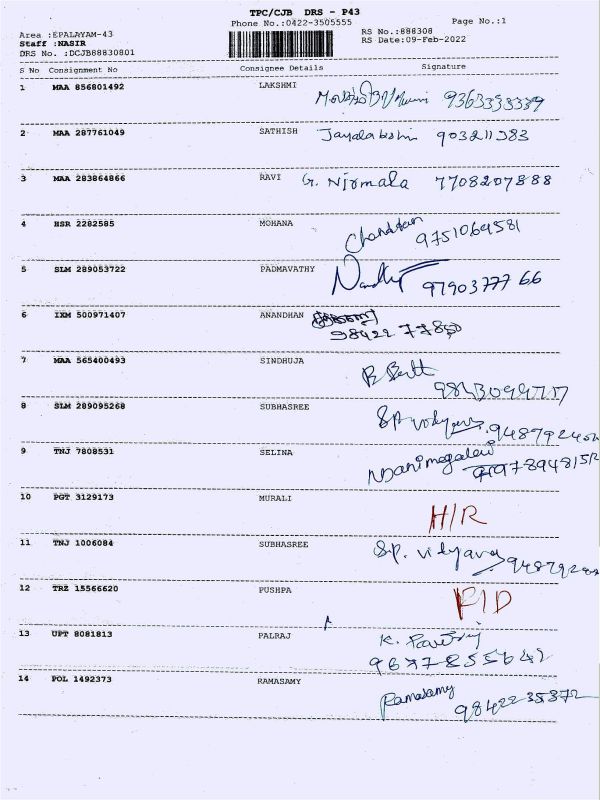 TPC/CJB DRS - P43
Phone No.:0422-3505555 Page No.:1
Area :EPALAYAM-43 RS No.:888308
Staff :NASIR RS Date:09-Feb-2022
DRS No. :DCJB88830801
S No Consignment No Consignee Details Signature
1 MAA 856801492 LAKSHMI 9363333339
2 MAA 287761049 SATHISH Jayalakshmi 903211383
3 MAA 283864866 RAVI G. Nirmala 7708207888
4 HSR 2282585 MOHANA Chandran 9751064581
5 SLM 289053722 PADMAVATHY 9790377766
6 IXM 500971407 ANANDHAN
7 MAA 565400493 SINDHUJA
8 SLM 289095268 SUBHASREE
9 TNJ 7808531 SELINA Manimegalai
10 PGT 3129173 MURALI H/R
11 TNJ 1006084 SUBHASREE S.P. Vidya
12 TRZ 15566620 PUSHPA
13 UPT 8081813 PALRAJ
9677855642
14 POL 1492373 RAMASAMY Ramasamy 9842235372